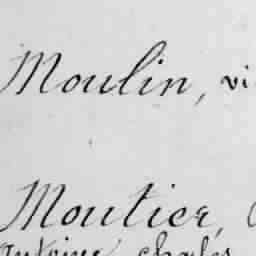 Moulin, vi
Moutier, (
Antoine Charles